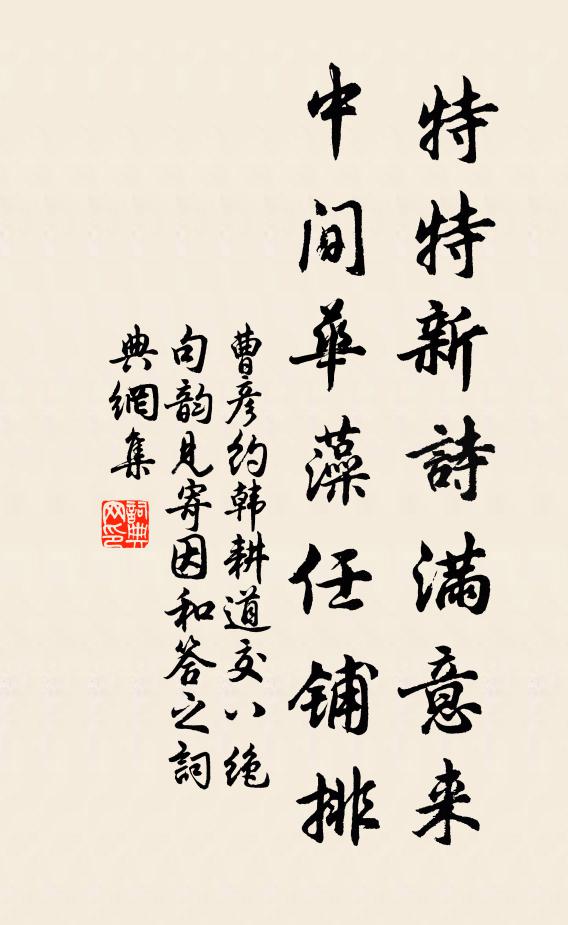 特特新詩滿意来
中间華藻任铺排
曹彦约韩耕道交八绝
句韵見寄因和答之詞
典網集
詞典网印